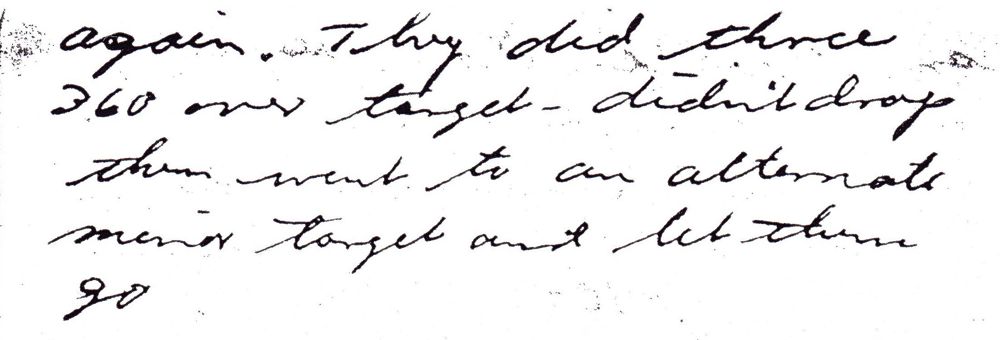 again. They did three
360 over target - didn't drop
them went to an alternate
minor target and let them
go